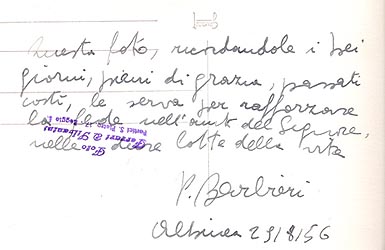 Questa foto, ricordandole i bei
giorni, pieni di grazia, passati
costì, le serva per rafforzare
la fede nell'aiuto del Signore,
nelle dure lotte della vita
P. Barbieri
Albinea 29/8/56
Foto
Portici S. Pietro
Reggio E.